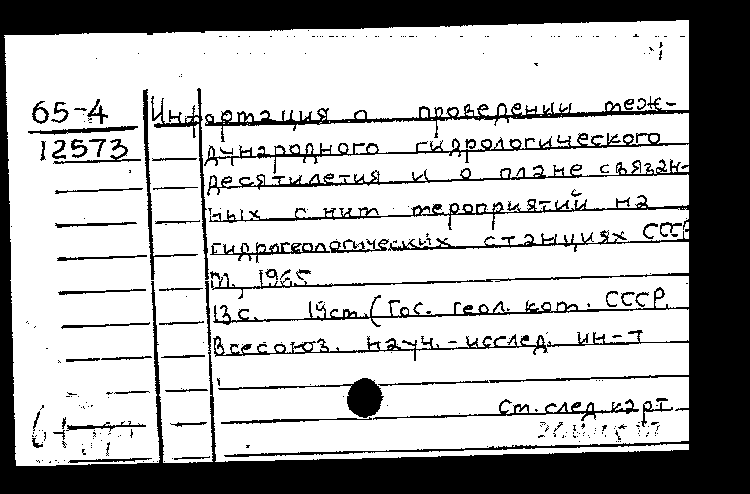 65-4
12573
Информация о проведении меж-
дународного гидрологического
десятилетия и о плане связан-
ных с ним мероприятий на
гидрогеологических станциях СССР
М., 1965
13 с. 19 см. (Гос. геол. ком. СССР.
Всесоюз. науч.-исслед. ин-т
См. след. карт.